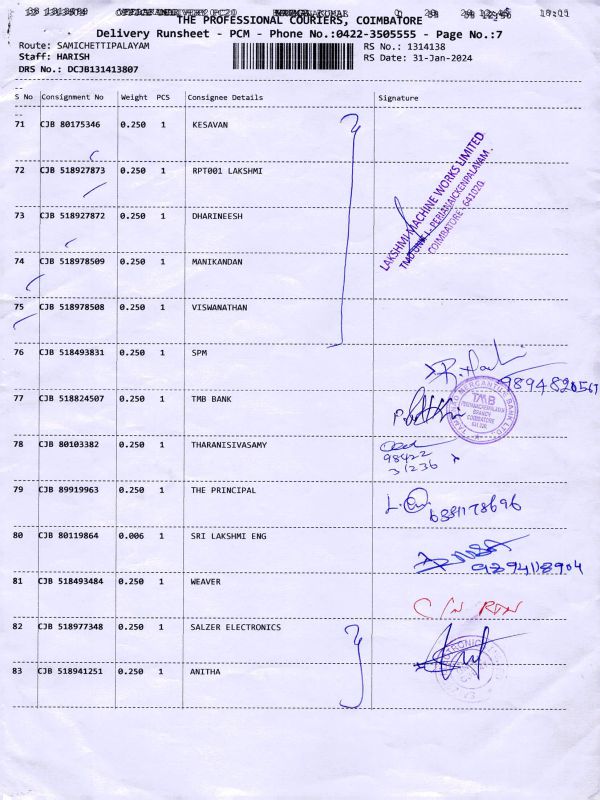 THE PROFESSIONAL COURIERS, COIMBATORE
Delivery Runsheet - PCM - Phone No.:0422-3505555 - Page No.:7
Route: SAMICHETTIPALAYAM RS No.: 1314138
Staff: HARISH RS Date: 31-Jan-2024
DRS No.: DCJB131413807
S No Consignment No Weight PCS Consignee Details Signature
71 CJB 80175346 0.250 1 KESAVAN
72 CJB 518927873 0.250 1 RPT001 LAKSHMI
73 CJB 518927872 0.250 1 DHARINEESH
74 CJB 518978509 0.250 1 MANIKANDAN
75 CJB 518978508 0.250 1 VISWANATHAN
LAKSHMI MACHINE WORKS LIMITED
PERIANAICKENPALAYAM,
COIMBATORE - 641020.
76 CJB 518493831 0.250 1 SPM
77 CJB 518824507 0.250 1 TMB BANK
TMB
78 CJB 80103382 0.250 1 THARANISIVASAMY
98422
31236
79 CJB 89919963 0.250 1 THE PRINCIPAL
80 CJB 80119864 0.006 1 SRI LAKSHMI ENG
81 CJB 518493484 0.250 1 WEAVER
C/N RTN
82 CJB 518977348 0.250 1 SALZER ELECTRONICS
83 CJB 518941251 0.250 1 ANITHA